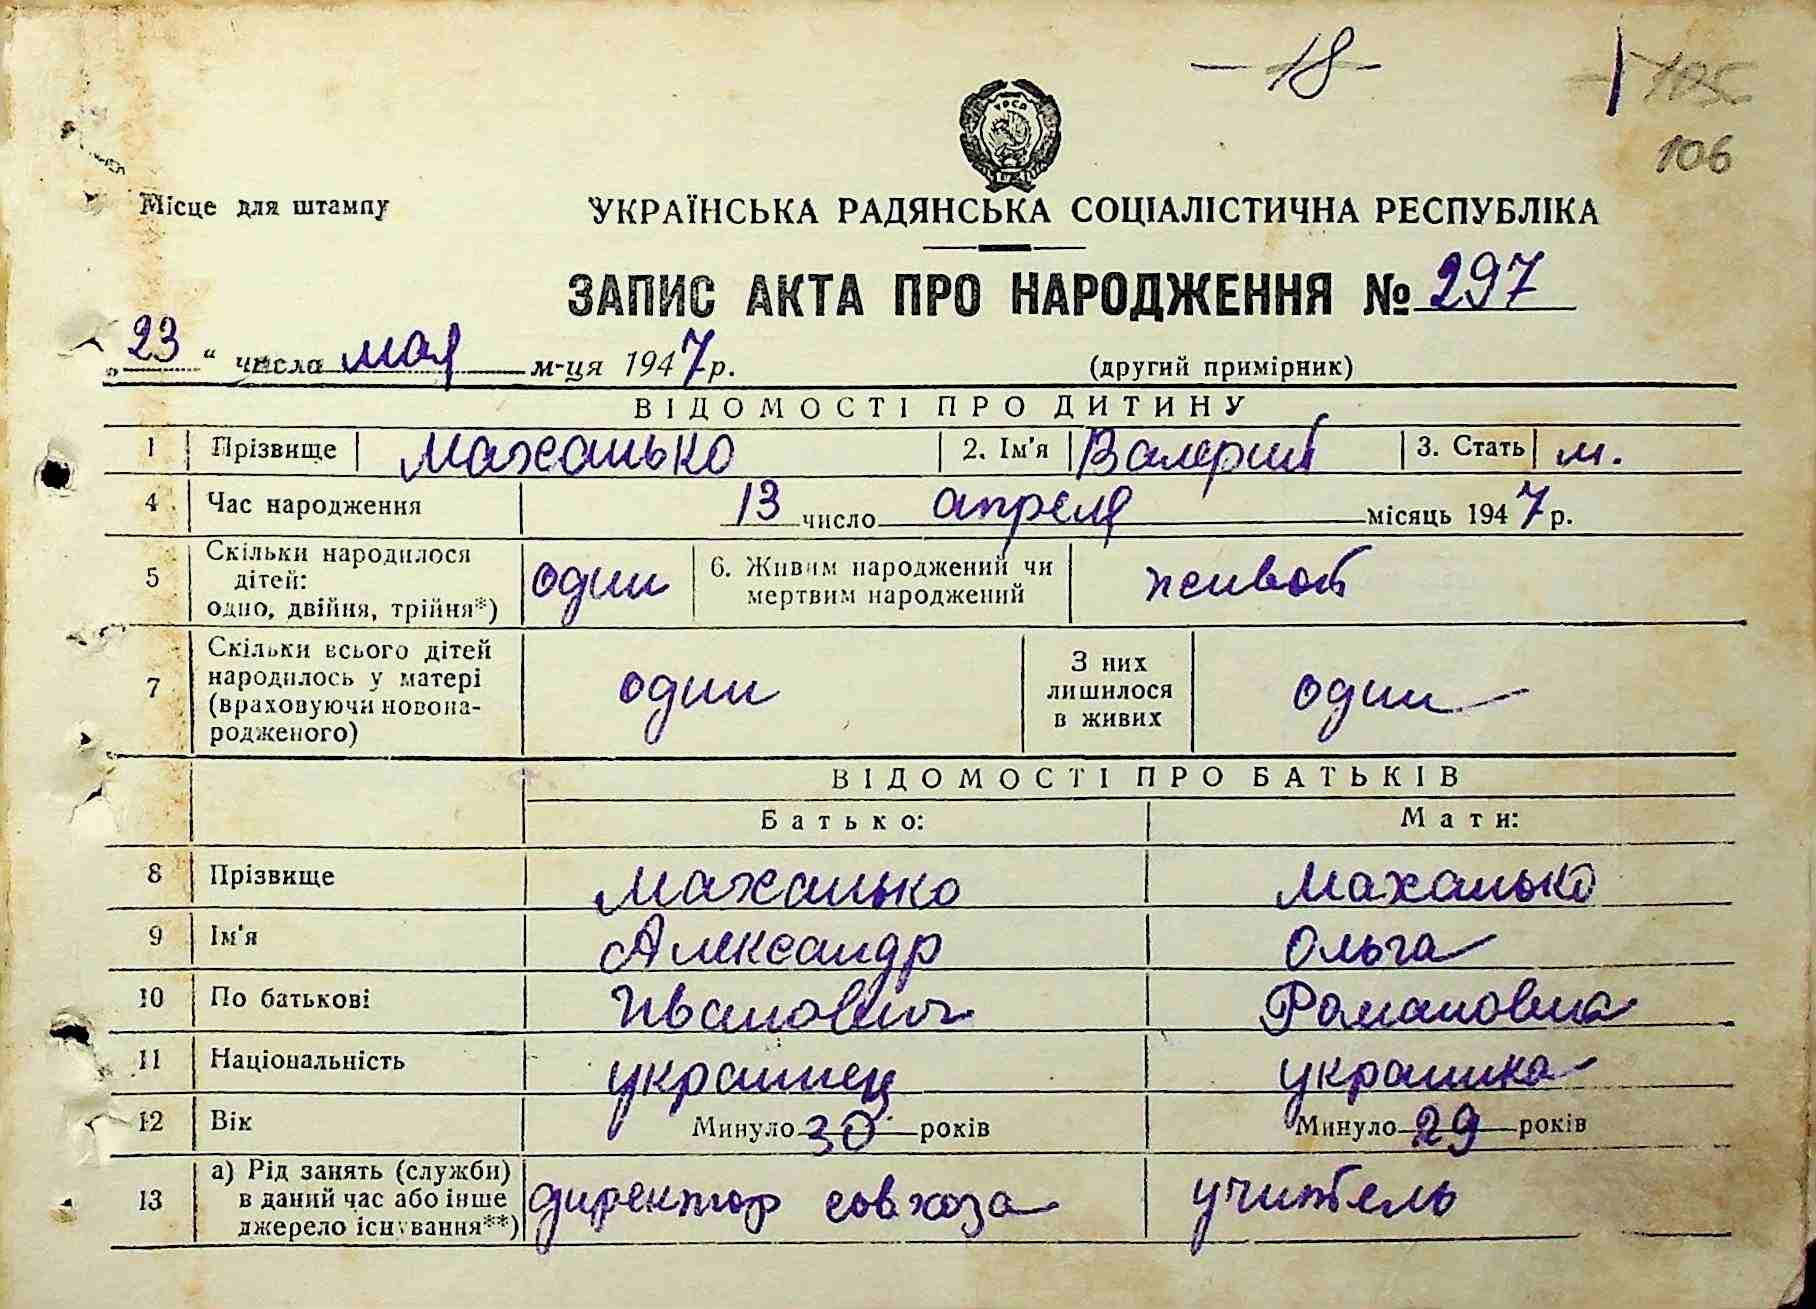 - 18 -
105
106
УРСР
Місце для штампу
УКРАЇНСЬКА РАДЯНСЬКА СОЦІАЛІСТИЧНА РЕСПУБЛІКА
ЗАПИС АКТА ПРО НАРОДЖЕННЯ № 297
„ 23 “ числа мая м-ця 1947 р. (другий примірник)
ВІДОМОСТІ ПРО ДИТИНУ
1 Прізвище Маханько 2. Ім'я Валерий 3. Стать м.
4 Час народження 13 число апреля місяць 1947 р.
5 Скільки народилося дітей: одно, двійня, трійня*) один 6. Живим народжений чи мертвим народжений живой
7 Скільки всього дітей народилось у матері (враховуючи новонародженого) один З них лишилося в живих один
ВІДОМОСТІ ПРО БАТЬКІВ
Батько: Мати:
8 Прізвище Маханько Маханько
9 Ім'я Александр Ольга
10 По батькові Иванович Романовна
11 Національність украинец украинка
12 Вік Минуло 30 років Минуло 29 років
13 а) Рід занять (служби) в даний час або інше джерело існування**) директор совхоза учитель